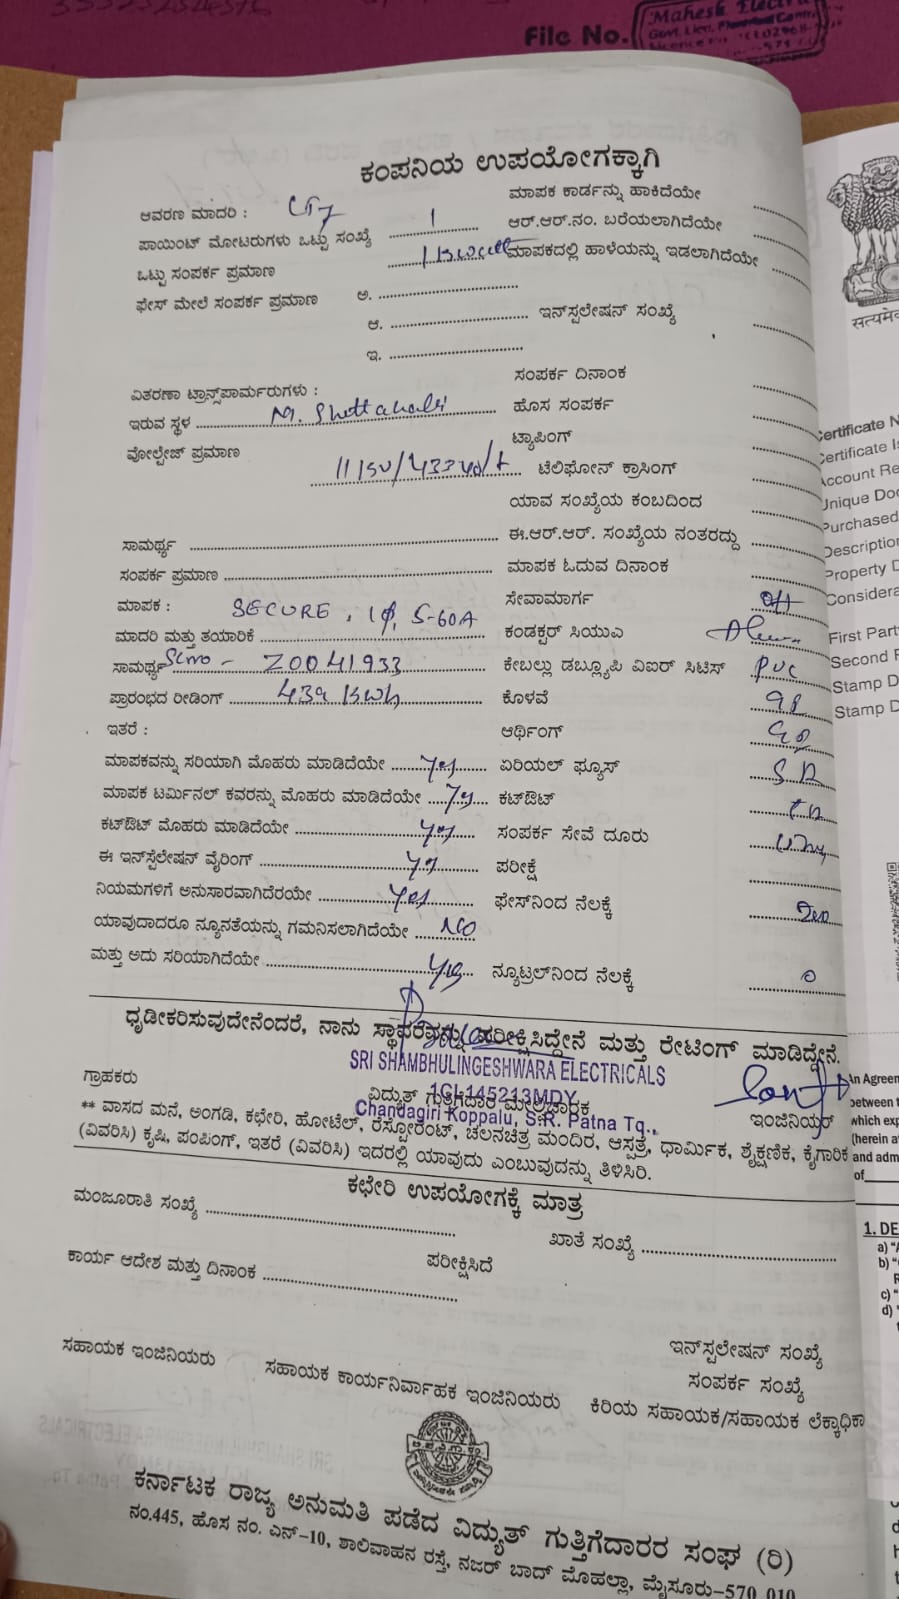 File No.
Mahesh Electri
ಕಂಪನಿಯ ಉಪಯೋಗಕ್ಕಾಗಿ
ಆವರಣ ಮಾದರಿ :
ಮಾಪಕ ಕಾರ್ಡನ್ನು ಹಾಕಿದೆಯೇ
ಪಾಯಿಂಟ್ ಮೋಟರುಗಳು ಒಟ್ಟು ಸಂಖ್ಯೆ 1
ಆರ್.ಆರ್.ನಂ. ಬರೆಯಲಾಗಿದೆಯೇ
ಒಟ್ಟು ಸಂಪರ್ಕ ಪ್ರಮಾಣ
ಮಾಪಕದಲ್ಲಿ ಹಾಳೆಯನ್ನು ಇಡಲಾಗಿದೆಯೇ
ಫೇಸ್ ಮೇಲೆ ಸಂಪರ್ಕ ಪ್ರಮಾಣ ಅ.
ಆ.
ಇನ್‌ಸ್ಪಲೇಷನ್ ಸಂಖ್ಯೆ
ಇ.
ಸಂಪರ್ಕ ದಿನಾಂಕ
ವಿತರಣಾ ಟ್ರಾನ್ಸ್‌ಪಾರ್ಮರುಗಳು :
ಇರುವ ಸ್ಥಳ M. Shettahalli
ಹೊಸ ಸಂಪರ್ಕ
ವೋಲ್ಟೇಜ್ ಪ್ರಮಾಣ
ಟ್ಯಾಪಿಂಗ್
ಟೆಲಿಫೋನ್ ಕ್ರಾಸಿಂಗ್
ಯಾವ ಸಂಖ್ಯೆಯ ಕಂಬದಿಂದ
ಸಾಮರ್ಥ್ಯ
ಈ.ಆರ್.ಆರ್. ಸಂಖ್ಯೆಯ ನಂತರದ್ದು
ಸಂಪರ್ಕ ಪ್ರಮಾಣ
ಮಾಪಕ ಓದುವ ದಿನಾಂಕ
ಮಾಪಕ : SECURE, 1φ, 5-60A
ಸೇವಾಮಾರ್ಗ
ಮಾದರಿ ಮತ್ತು ತಯಾರಿಕೆ
ಕಂಡಕ್ಟರ್ ಸಿಯುಎ
ಸಾಮರ್ಥ್ಯ Slno - Z0041933
ಕೇಬಲ್ಲು ಡಬ್ಲ್ಯೂಪಿ ವಿಐರ್ ಸಿಟಿಸ್ PVC
ಪ್ರಾರಂಭದ ರೀಡಿಂಗ್ 439 kwh
ಕೊಳವೆ
ಇತರೆ :
ಆರ್ಥಿಂಗ್
ಮಾಪಕವನ್ನು ಸರಿಯಾಗಿ ಮೊಹರು ಮಾಡಿದೆಯೇ Yes
ಏರಿಯಲ್ ಫ್ಯೂಸ್
ಮಾಪಕ ಟರ್ಮಿನಲ್ ಕವರನ್ನು ಮೊಹರು ಮಾಡಿದೆಯೇ Yes
ಕಟ್‌ಔಟ್
ಕಟ್‌ಔಟ್ ಮೊಹರು ಮಾಡಿದೆಯೇ Yes
ಸಂಪರ್ಕ ಸೇವೆ ದೂರು
ಈ ಇನ್‌ಸ್ಪೆಲೇಷನ್ ವೈರಿಂಗ್ Yes
ಪರೀಕ್ಷೆ
ನಿಯಮಗಳಿಗೆ ಅನುಸಾರವಾಗಿದೆರಯೇ Yes
ಫೇಸ್‌ನಿಂದ ನೆಲಕ್ಕೆ
ಯಾವುದಾದರೂ ನ್ಯೂನತೆಯನ್ನು ಗಮನಿಸಲಾಗಿದೆಯೇ NO
ಮತ್ತು ಅದು ಸರಿಯಾಗಿದೆಯೇ Yes
ನ್ಯೂಟ್ರಲ್‌ನಿಂದ ನೆಲಕ್ಕೆ 0
ಧೃಡೀಕರಿಸುವುದೇನೆಂದರೆ, ನಾನು ಸ್ಥಾವರವನ್ನು ಪರೀಕ್ಷಿಸಿದ್ದೇನೆ ಮತ್ತು ರೇಟಿಂಗ್ ಮಾಡಿದ್ದೇನೆ.
SRI SHAMBHULINGESHWARA ELECTRICALS
ಗ್ರಾಹಕರು
ವಿದ್ಯುತ್ ಗುತ್ತಿಗೆದಾರ ಮೇಲ್ವಿಚಾರಕ
1CL145213MDY
ಇಂಜಿನಿಯರ್
Chandagiri Koppalu, S.R. Patna Tq.,
** ವಾಸದ ಮನೆ, ಅಂಗಡಿ, ಕಛೇರಿ, ಹೋಟೆಲ್, ರೆಸ್ಟೋರೆಂಟ್, ಚಲನಚಿತ್ರ ಮಂದಿರ, ಆಸ್ಪತ್ರೆ, ಧಾರ್ಮಿಕ, ಶೈಕ್ಷಣಿಕ, ಕೈಗಾರಿಕ
(ವಿವರಿಸಿ) ಕೃಷಿ, ಪಂಪಿಂಗ್, ಇತರೆ (ವಿವರಿಸಿ) ಇದರಲ್ಲಿ ಯಾವುದು ಎಂಬುವುದನ್ನು ತಿಳಿಸಿರಿ.
ಕಛೇರಿ ಉಪಯೋಗಕ್ಕೆ ಮಾತ್ರ
ಮಂಜೂರಾತಿ ಸಂಖ್ಯೆ
ಖಾತೆ ಸಂಖ್ಯೆ
ಪರೀಕ್ಷಿಸಿದೆ
ಕಾರ್ಯ ಆದೇಶ ಮತ್ತು ದಿನಾಂಕ
ಇನ್‌ಸ್ಪಲೇಷನ್ ಸಂಖ್ಯೆ
ಸಂಪರ್ಕ ಸಂಖ್ಯೆ
ಸಹಾಯಕ ಇಂಜಿನಿಯರು
ಸಹಾಯಕ ಕಾರ್ಯನಿರ್ವಾಹಕ ಇಂಜಿನಿಯರು
ಕಿರಿಯ ಸಹಾಯಕ/ಸಹಾಯಕ ಲೆಕ್ಕಾಧಿಕಾ
ಕರ್ನಾಟಕ ರಾಜ್ಯ ಅನುಮತಿ ಪಡೆದ ವಿದ್ಯುತ್ ಗುತ್ತಿಗೆದಾರರ ಸಂಘ (ರಿ)
ನಂ.445, ಹೊಸ ನಂ. ಎನ್-10, ಶಾಲಿವಾಹನ ರಸ್ತೆ, ನಜರ್ ಬಾದ್ ಮೊಹಲ್ಲಾ, ಮೈಸೂರು-570 010
सत्यमेव
Certificate N
Certificate Is
Account Re
Unique Doc
Purchased
Description
Property D
Considera
First Part
Second P
Stamp D
Stamp D
An Agreen
between t
which exp
(herein a
and adm
of
1. DE
a) "A
b) "
c) "
d)